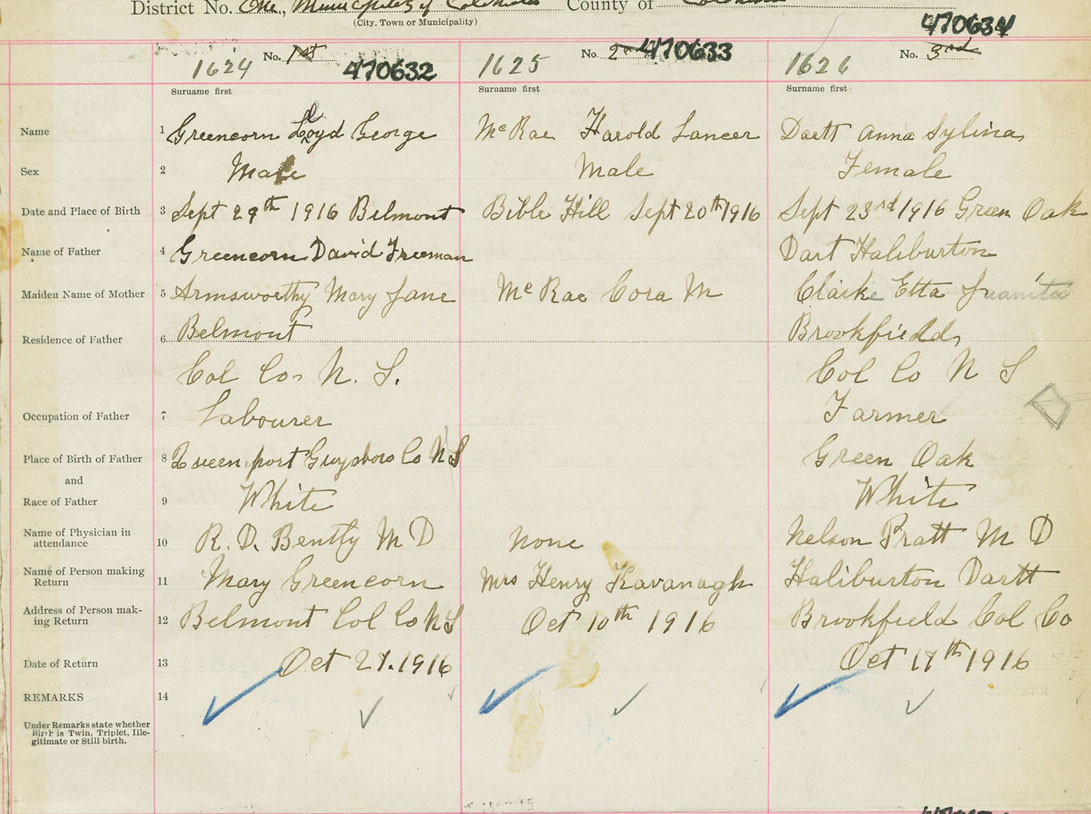 District No. One, Municipality of Colchester County of Colchester
(City, Town or Municipality)
470634
1624 No. 1st 470632 1625 No. 470633 1626 No. 3rd
Surname first Surname first Surname first
Name 1 Greencorn Loyd George McRae Harold Lancer Dartt Anna Sylina
Sex 2 Male Male Female
Date and Place of Birth 3 Sept 29th 1916 Belmont Bible Hill Sept 20th 1916 Sept 23rd 1916 Green Oak
Name of Father 4 Greencorn David Freeman Dart Haliburton
Maiden Name of Mother 5 Armsworthy Mary Jane McRae Cora M Clarke Etta Juanita
Residence of Father 6 Belmont Brookfield
Col Co N. S. Col Co N S
Occupation of Father 7 Labourer Farmer
Place of Birth of Father 8 Queensport Guysboro Co N S Green Oak
and
Race of Father 9 White White
Name of Physician in
attendance 10 R. D. Bently M D None Nelson Pratt M D
Name of Person making
Return 11 Mary Greencorn Mrs Henry Kavanagh Haliburton Dartt
Address of Person mak-
ing Return 12 Belmont Col Co N S Oct 10th 1916 Brookfield Col Co
Date of Return 13 Oct 27. 1916 Oct 17th 1916
REMARKS 14
Under Remarks state whether
Birth is Twin, Triplet, Ille-
gitimate or Still-birth.